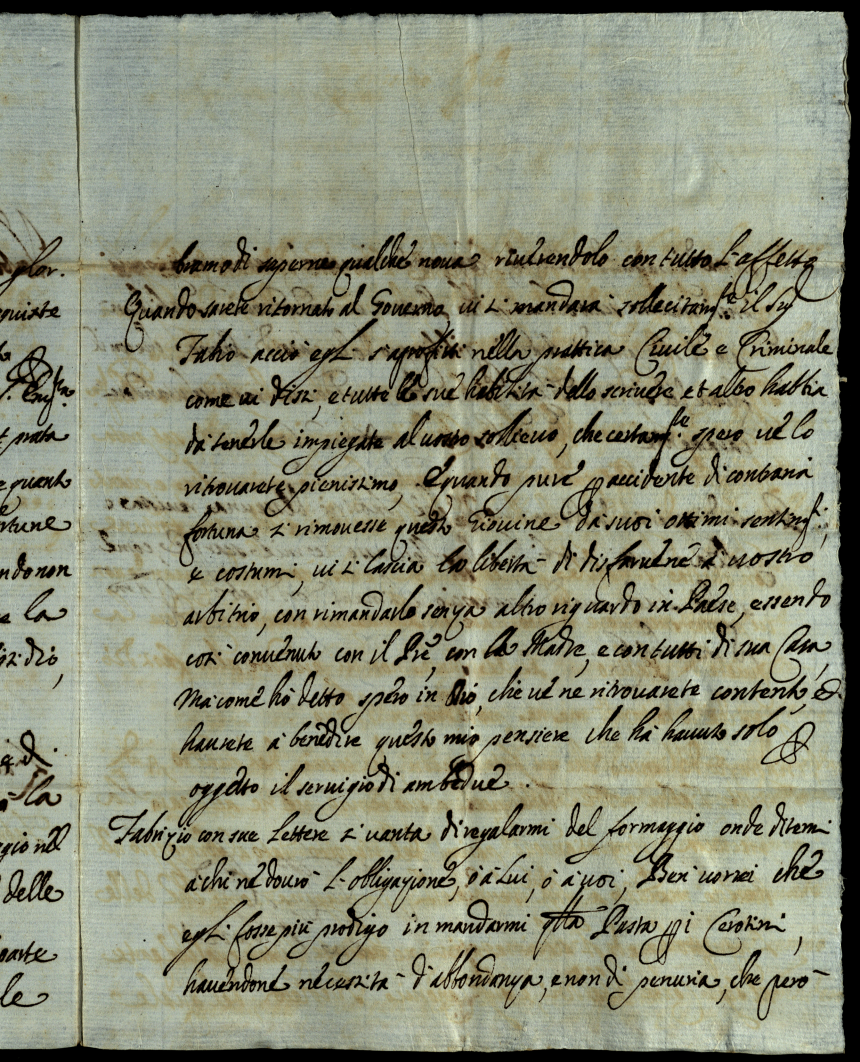 bramo di saperne qualche nova riverendolo con tutto l'affetto
Quando sarete ritornato al Governo vi si mandarà sollecitam.te il Sig.
Fabio acciò egli s'aprofitti nella prattica Civile e Criminale
come vi dissi, e tutte le sue habilità dello scrivere et altro habbia
da tenerle impiegate al vostro sollievo, che certam.te spero ve lo
ritrovarete pienissimo, e quando pure p accidente di contraria
fortuna si rimovesse questo Giovine da suoi ottimi sentim.ti,
e costumi, vi si lascia la libertà di disfarvene à vostro
arbitrio, con rimandarlo senza altro riguardo in Paese, essendo
così convenuto con il Pre, con la Madre, e con tutti di sua Casa,
Ma come hò detto spero in Dio, che ve ne ritrovarete contento, e
havrete à benedire questo mio pensiere che hà havuto solo p
oggetto il servigio di ambedue.
Fabrizio con sue Lettere si vanta di regalarmi del formaggio onde ditemi
à chi ne dovrò l'obligazione, ò à Lui, ò à voi, Ben vorrei che
egli fosse più prodigo in mandarmi qlla Pasta p i Cerotini,
havendone necessità d'abbondanza, e non di penuria, che però
glor.
quiste
prata
e quanto
fortune
ndo non
e la
dio,
e di
la
gio nel
delle
parte
le